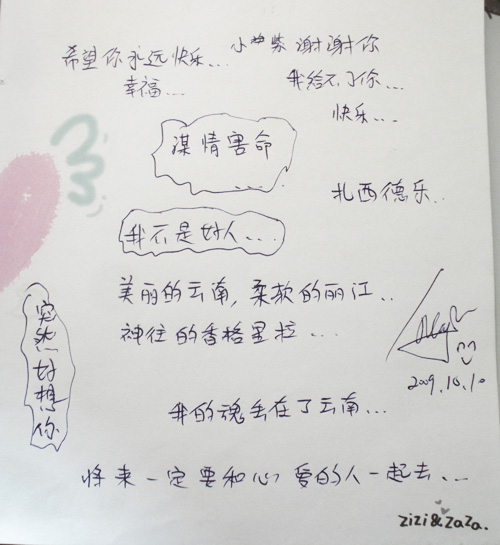 希望你永远快乐...
幸福...
小 紫 谢谢你
我给不了你...
快乐...
谋情害命
扎西德乐..
我不是好人...
美丽的云南,柔软的丽江..
神往的香格里拉...
突然好想你
2009.10.10
我的魂丢在了云南...
将来一定要和心爱的人一起去...
zizi&zaza.